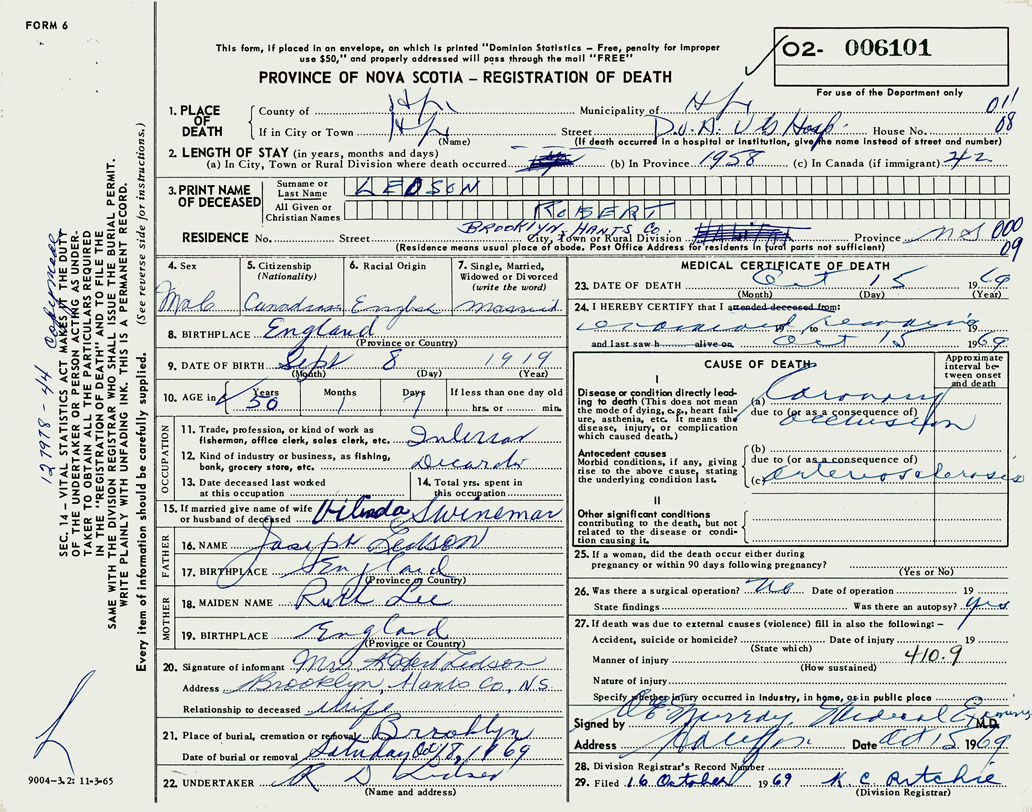 FORM 6
This form, if placed in an envelope, on which is printed "Dominion Statistics – Free, penalty for improper
use $50," and properly addressed will pass through the mail "FREE"
PROVINCE OF NOVA SCOTIA – REGISTRATION OF DEATH
O2- 006101
For use of the Department only
1. PLACE OF DEATH
County of Hfx. Municipality of Hfx 011
If in City or Town Hfx. Street D.V.A. V G Hosp. House No. 08
(Name) (If death occurred in a hospital or institution, give the name instead of street and number)
2. LENGTH OF STAY (in years, months and days)
(a) In City, Town or Rural Division where death occurred (b) In Province 1958 (c) In Canada (if immigrant) 42
3. PRINT NAME OF DECEASED
Surname or Last Name LEDSON
All Given or Christian Names ROBERT
BROOKLYN, HANTS CO.
RESIDENCE No. Street City, Town or Rural Division Province N S 000
(Residence means usual place of abode. Post Office Address for residents in rural parts not sufficient) 09
4. Sex Male
5. Citizenship (Nationality) Canadian
6. Racial Origin English
7. Single, Married, Widowed or Divorced (write the word) married
8. BIRTHPLACE England
(Province or Country)
9. DATE OF BIRTH Sept 8 1919
(Month) (Day) (Year)
10. AGE in Years 50 Months 1 Days 7 If less than one day old
hrs. or min.
OCCUPATION
11. Trade, profession, or kind of work as
fisherman, office clerk, sales clerk, etc.
12. Kind of industry or business, as fishing,
bank, grocery store, etc.
13. Date deceased last worked
at this occupation
14. Total yrs. spent in
this occupation
15. If married give name of wife
or husband of deceased Vilinda Swinemar
FATHER
16. NAME Joseph Ledson
17. BIRTHPLACE England
(Province or Country)
MOTHER
18. MAIDEN NAME Ruth Lee
19. BIRTHPLACE England
(Province or Country)
20. Signature of informant Mrs Robert Ledson
Address Brooklyn, Hants Co, N.S
Relationship to deceased Wife
21. Place of burial, cremation or removal Brooklyn
Date of burial or removal Saturday Oct 18, 1969
22. UNDERTAKER
(Name and address)
MEDICAL CERTIFICATE OF DEATH
23. DATE OF DEATH Oct 15 1969
(Month) (Day) (Year)
24. I HEREBY CERTIFY that I attended deceased from:
examined remains
19 to 19
and last saw h alive on Oct 15 1969
CAUSE OF DEATH
Approximate interval between onset and death
I
Disease or condition directly leading to death (This does not mean
the mode of dying, e.g., heart failure, asthenia, etc. it means the
disease, injury, or complication
which caused death.)
(a) Coronary
due to (or as a consequence of)
occlusion
Antecedent causes
Morbid conditions, if any, giving
rise to the above cause, stating
the underlying condition last.
(b)
due to (or as a consequence of)
(c) arteriosclerosis
II
Other significant conditions
contributing to the death, but not
related to the disease or condition causing it.
25. If a woman, did the death occur either during
pregnancy or within 90 days following pregnancy?
(Yes or No)
26. Was there a surgical operation? no Date of operation 19
State findings Was there an autopsy? yes
27. If death was due to external causes (violence) fill in also the following: –
Accident, suicide or homicide? Date of injury 19
(State which)
Manner of injury 410.9
(How sustained)
Nature of injury
Specify whether injury occurred in Industry, in home, or in public place
Signed by Murray Medical Examiner M.D.
Address Halifax Date Oct 15 1969
28. Division Registrar's Record Number
29. Filed 16 October 1969 K. C. Ritchie
(Division Registrar)
SEC. 14 – VITAL STATISTICS ACT MAKES IT THE DUTY
OF THE UNDERTAKER OR PERSON ACTING AS UNDER-
TAKER TO OBTAIN ALL THE PARTICULARS REQUIRED
IN THE "REGISTRATION OF DEATH" AND TO FILE THE
SAME WITH THE DIVISION REGISTRAR WHO SHALL ISSUE THE BURIAL PERMIT.
WRITE PLAINLY WITH UNFADING INK. THIS IS A PERMANENT RECORD.
Every item of information should be carefully supplied. (See reverse side for instructions.)
9004-3.2: 11-3-65